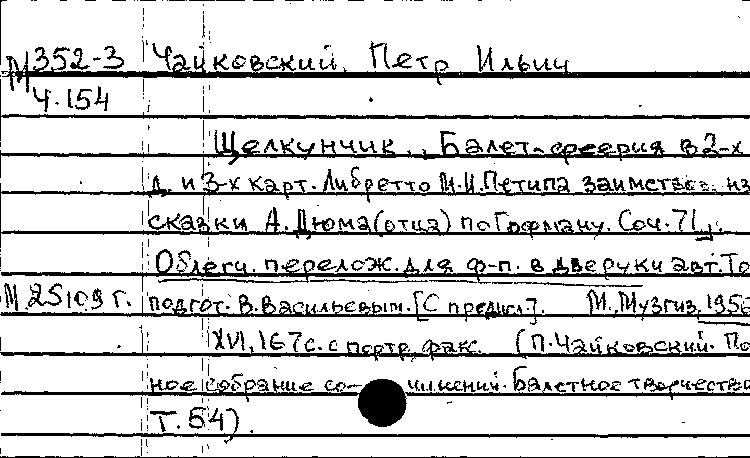 М 352-3 Чайковский, Петр Ильич
Ч.154
Щелкунчик. Балет-феерия в 2-х
д. и 3-х карт. Либретто М.И.Петипа заимствов. из
сказки А. Дюма (отца) по Гофману. Соч. 71.
Облегч. перелож. для ф-п. в две руки авт. То
М.25109 г. подгот. В. Васильевым. [С предисл.]. М., Музгиз, 1956
XVI, 167 с. с портр., факс. (П. Чайковский. По
ное собрание со- чинений. Балетное творчество
Т. 54).